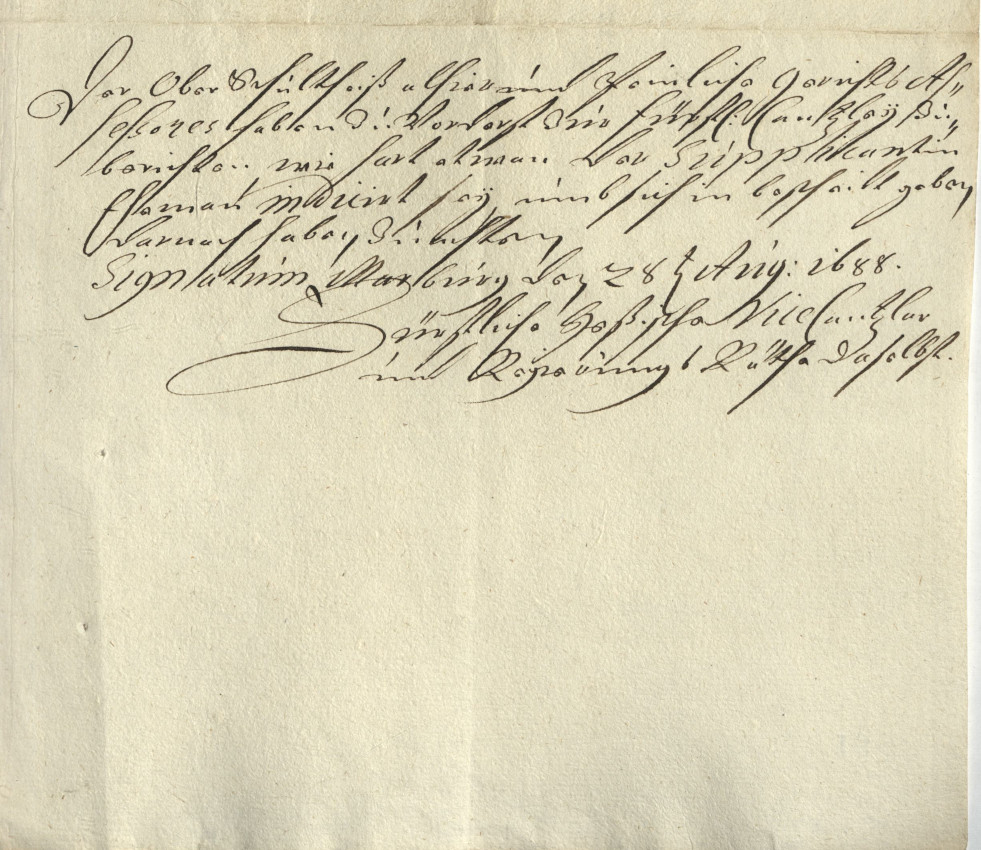 Der Ober Schultheiß alhier und Peinliche Gerichts As„
seßores haben zu Vorderst zur fürstl: Cantzley zu„
berichten wie hart etwan der Supplicantin
Eheman indicirt sey, undt sich in bescheidt geben
darnach haben zu achten
Signatum Marburg den 28t Aug: 1688.
Fürstliche Heßische ViceCantzler
und Regierungs Räthe daselbst.